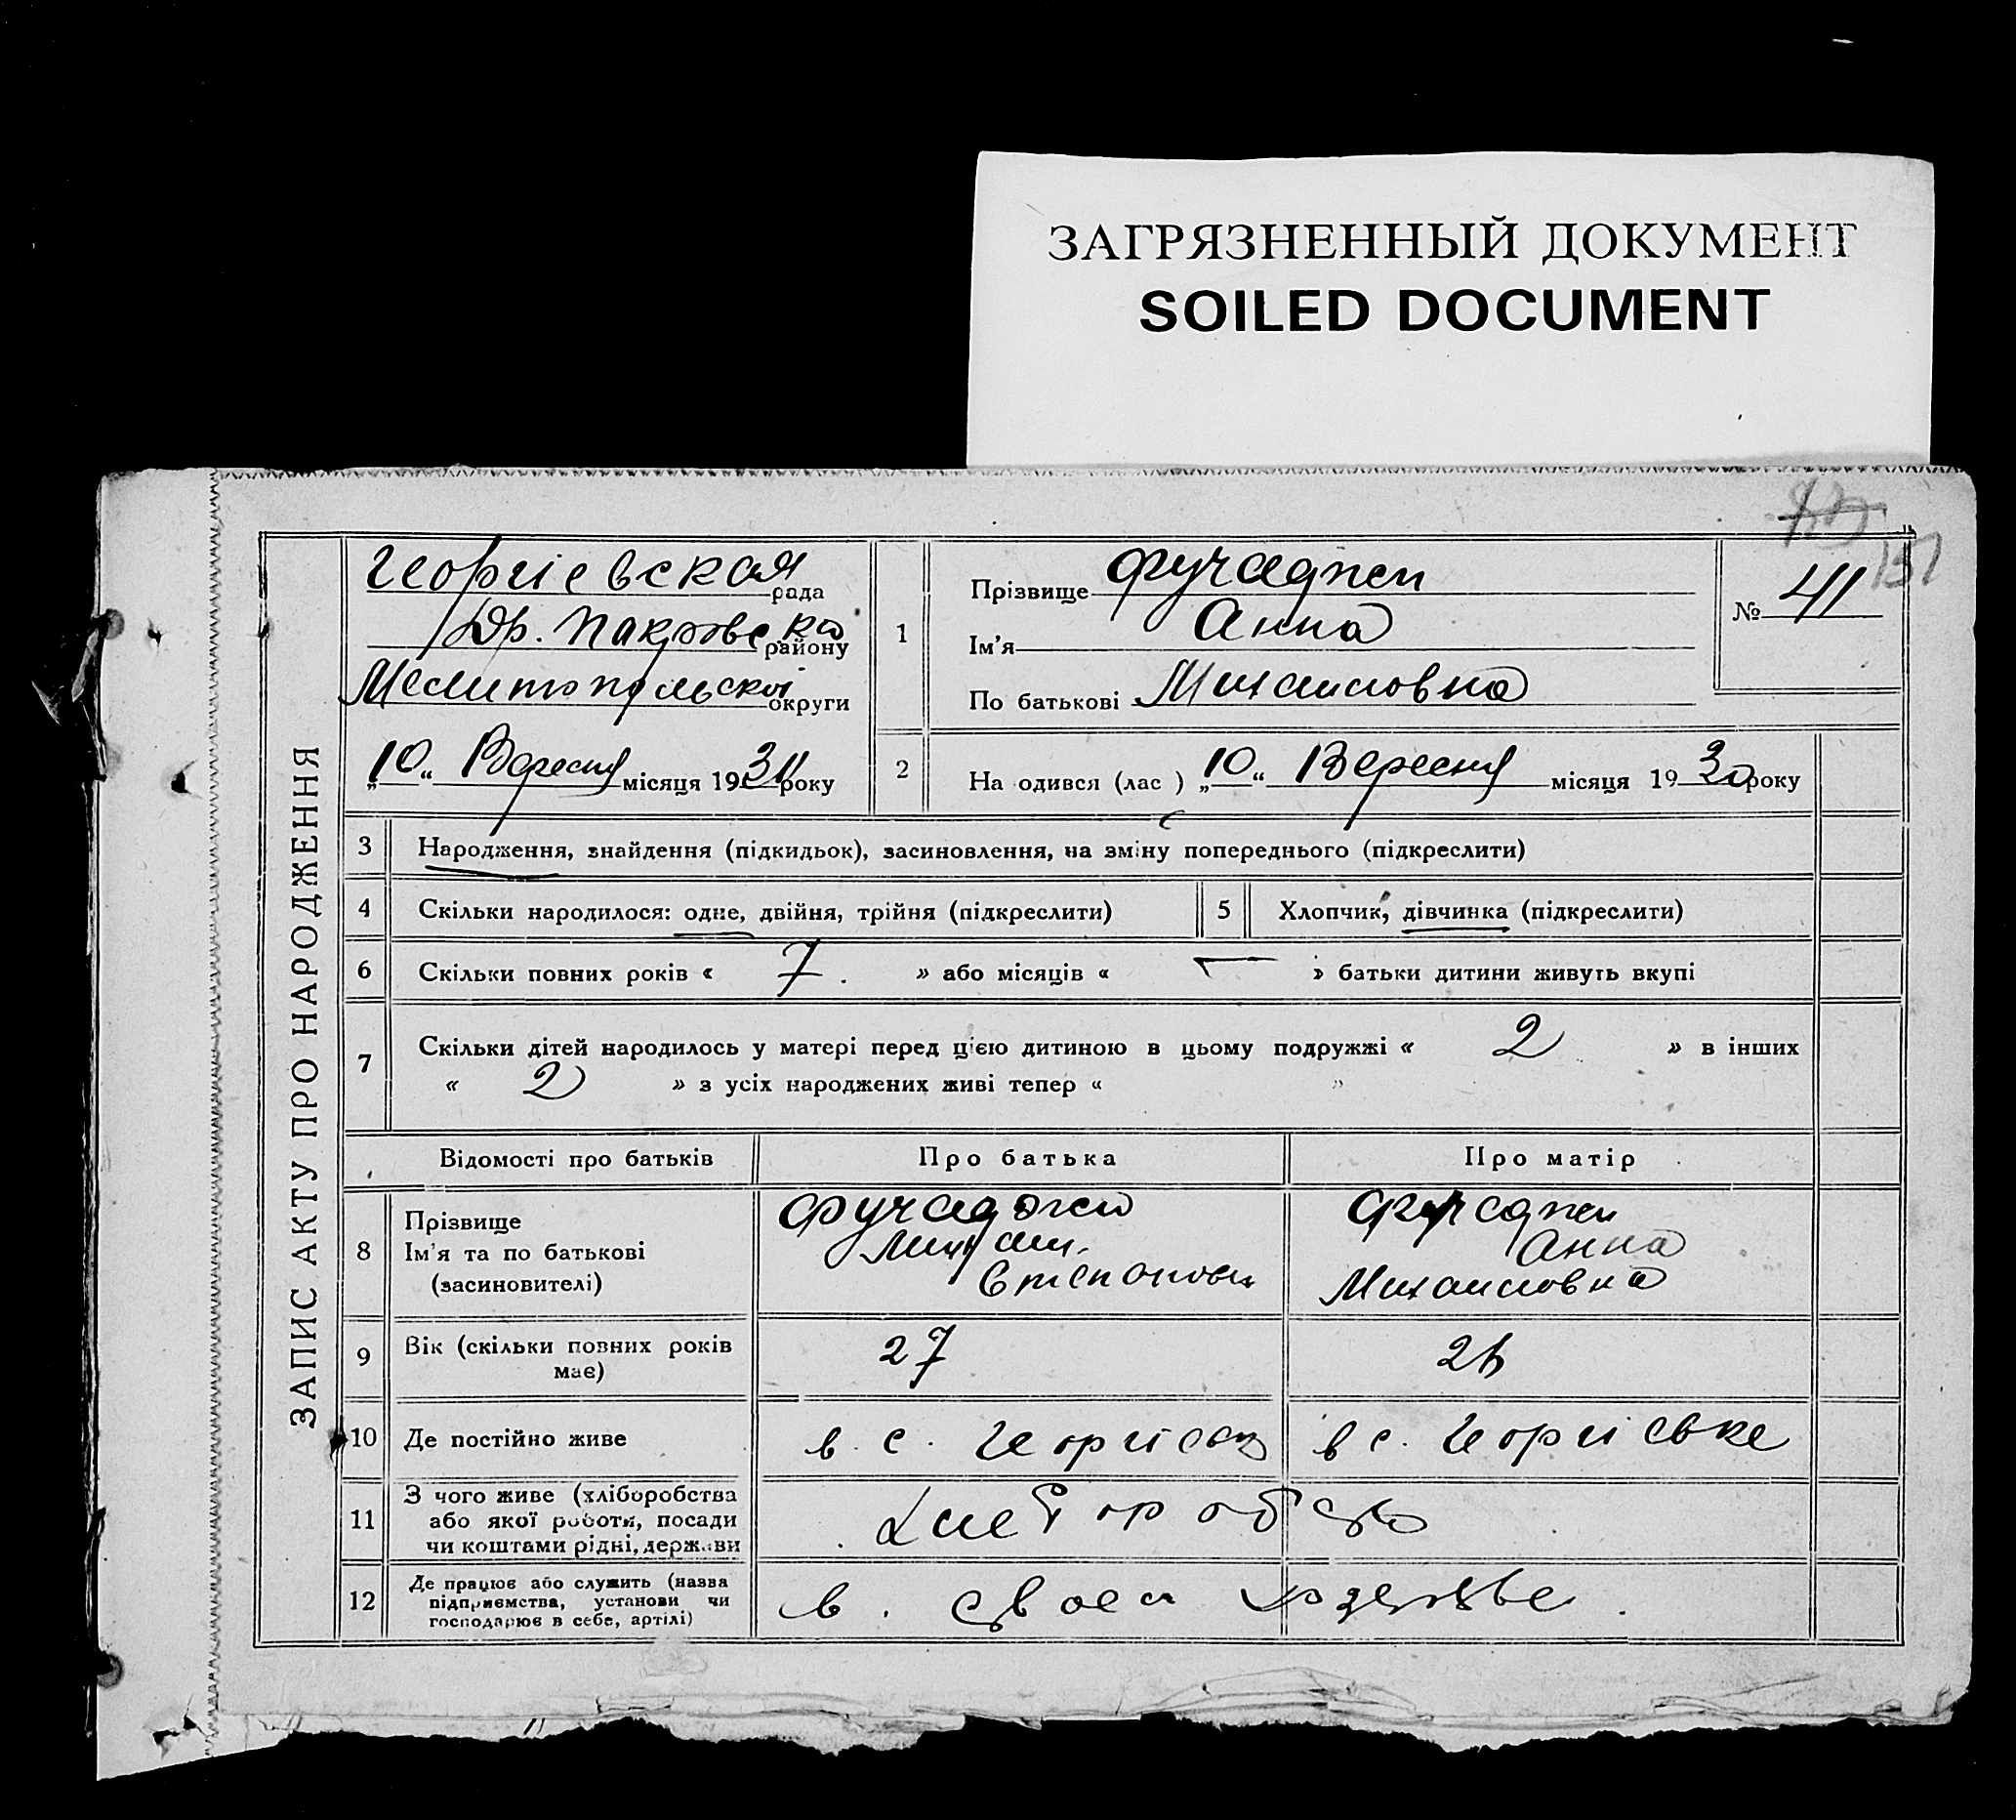 ЗАГРЯЗНЕННЫЙ ДОКУМЕНТ
SOILED DOCUMENT
151
ЗАПИС АКТУ ПРО НАРОДЖЕННЯ
Георгіевская рада
району
Мелитопольскої округи
„10“ Вересня місяця 1931 року
1
Прізвище Фучаджи
Ім'я Анна
По батькові Михаиловна
№ 41
2
На одився (лас ) „10“ Вересня місяця 1930 року
3 Народження, знайдення (підкидьок), засиновлення, на зміну попереднього (підкреслити)
4 Скільки народилося: одне, двійня, трійня (підкреслити) 5 Хлопчик, дівчинка (підкреслити)
6 Скільки повних років « 7. » або місяців « — » батьки дитини живуть вкупі
7 Скільки дітей народилось у матері перед цією дитиною в цьому подружжі « 2 » в інших
« 2 » з усіх народжених живі тепер « »
Відомості про батьків Про батька Про матір
8 Прізвище
Ім'я та по батькові
(засиновителі)
Фучаджи
Степанович
Фучаджи
Анна
Михаиловна
9 Вік (скільки повних років
має)
27 26
10 Де постійно живе в. с. Георгієвц в с. Георгієвке
11 З чого живе (хліборобства
або якої роботи, посади
чи коштами рідні, держави
12 Де працює або служить (назва
підприємства, установи чи
господарює в себе, артілі)
в. своем